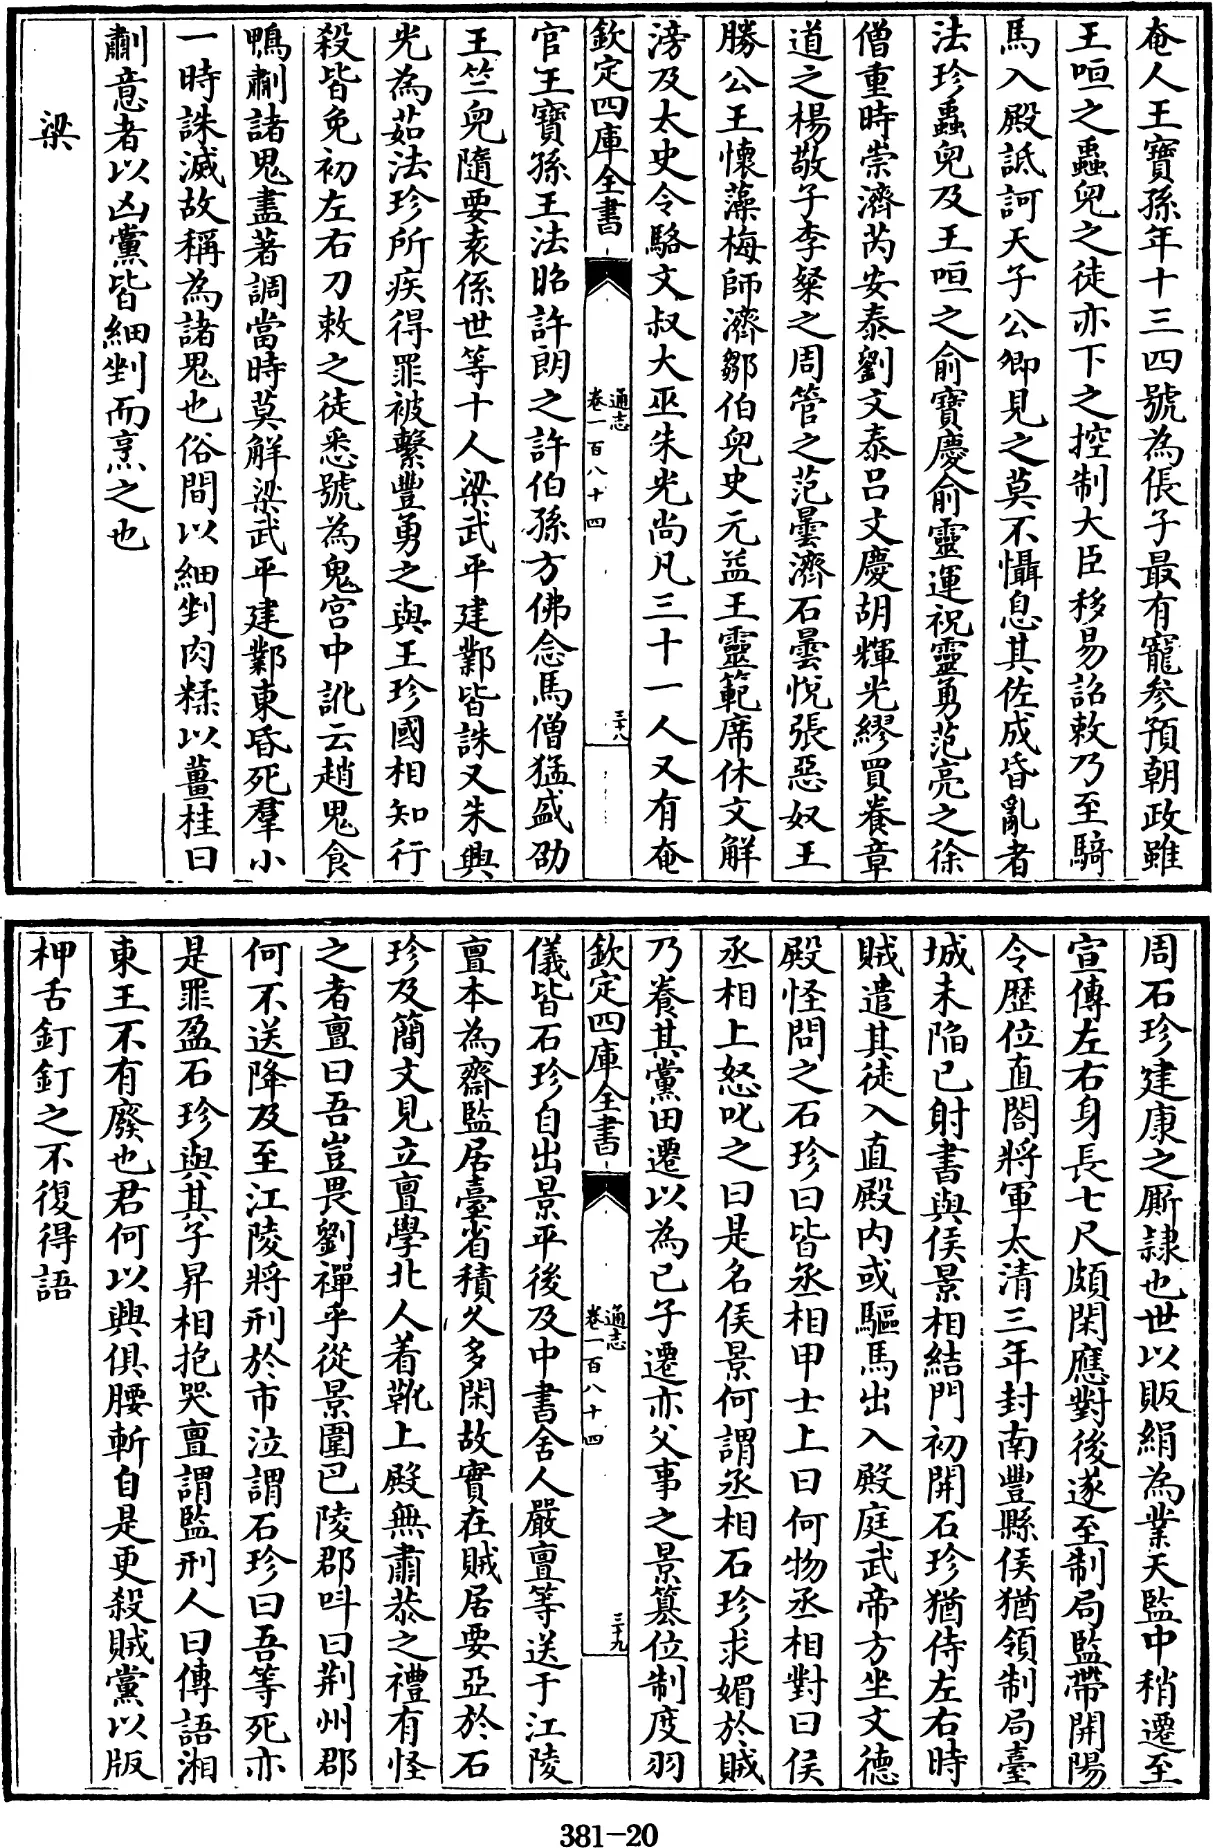 奄人王寶孫年十三四號為倀子最有寵參預朝政雖
王咺之蟲兒之徒亦下之控制大臣移易詔敕乃至騎
馬入殿詆訶天子公卿見之莫不懾息其佐成昏亂者
法珍蟲兒及王咺之俞寶慶俞靈運祝靈勇范亮之徐
僧重時崇濟芮安泰劉文泰呂文慶胡輝光繆買養章
道之楊敬子李粲之周管之范曇濟石曇悅張惡奴王
勝公王懷藻梅師濟鄒伯兒史元益王靈範席休文解
滂及太史令駱文叔大巫朱光尚凡三十一人又有奄
欽定四庫全書 通志 卷一百八十四 三十八
官王寶孫王法昭許朗之許伯孫方佛念馬僧猛盛劭
王竺兒隨要袁係世等十人梁武平建鄴皆誅又朱興
光為茹法珍所疾得罪被繫豐勇之與王珍國相知行
殺皆免初左右刀敕之徒悉號為鬼宮中訛云趙鬼食
鴨劘諸鬼盡著調當時莫解梁武平建鄴東昏死羣小
一時誅滅故稱為諸鬼也俗間以細剉肉糅以薑桂曰
劘意者以凶黨皆細剉而烹之也
梁
周石珍建康之厮隷也世以販絹為業天監中稍遷至
宣傳左右身長七尺頗閑應對後遂至制局監帶開陽
令歷位直閤將軍太清三年封南豐縣侯猶領制局臺
城未陷已射書與侯景相結門初開石珍猶侍左右時
賊遣其徒入直殿内或驅馬出入殿庭武帝方坐文德
殿怪問之石珍曰皆丞相甲士上曰何物丞相對曰侯
丞相上怒叱之曰是名侯景何謂丞相石珍求媚於賊
乃養其黨田遷以為己子遷亦父事之景篡位制度羽
欽定四庫全書 通志 卷一百八十四 三十九
儀皆石珍自出景平後及中書舍人嚴亶等送于江陵
亶本為齋監居臺省積久多閑故實在賊居要亞於石
珍及簡文見立亶學北人着靴上殿無肅恭之禮有怪
之者亶曰吾豈畏劉禪乎從景圍巴陵郡呌曰荆州郡
何不送降及至江陵將刑於市泣謂石珍曰吾等死亦
是罪盈石珍與其子昇相抱哭亶謂監刑人曰傳語湘
東王不有廢也君何以興俱腰斬自是更殺賊黨以版
柙舌釘釘之不復得語
381-20